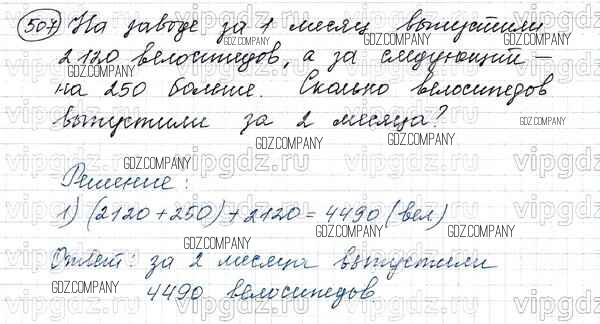 507 На заводе за 1 месяц выпустили
2120 велосипедов, а за следующий –
на 250 больше. Сколько велосипедов
выпустили за 2 месяца?
Решение:
1) (2120 + 250) + 2120 = 4490 (вел)
Ответ: за 2 месяца выпустили
4490 велосипедов.